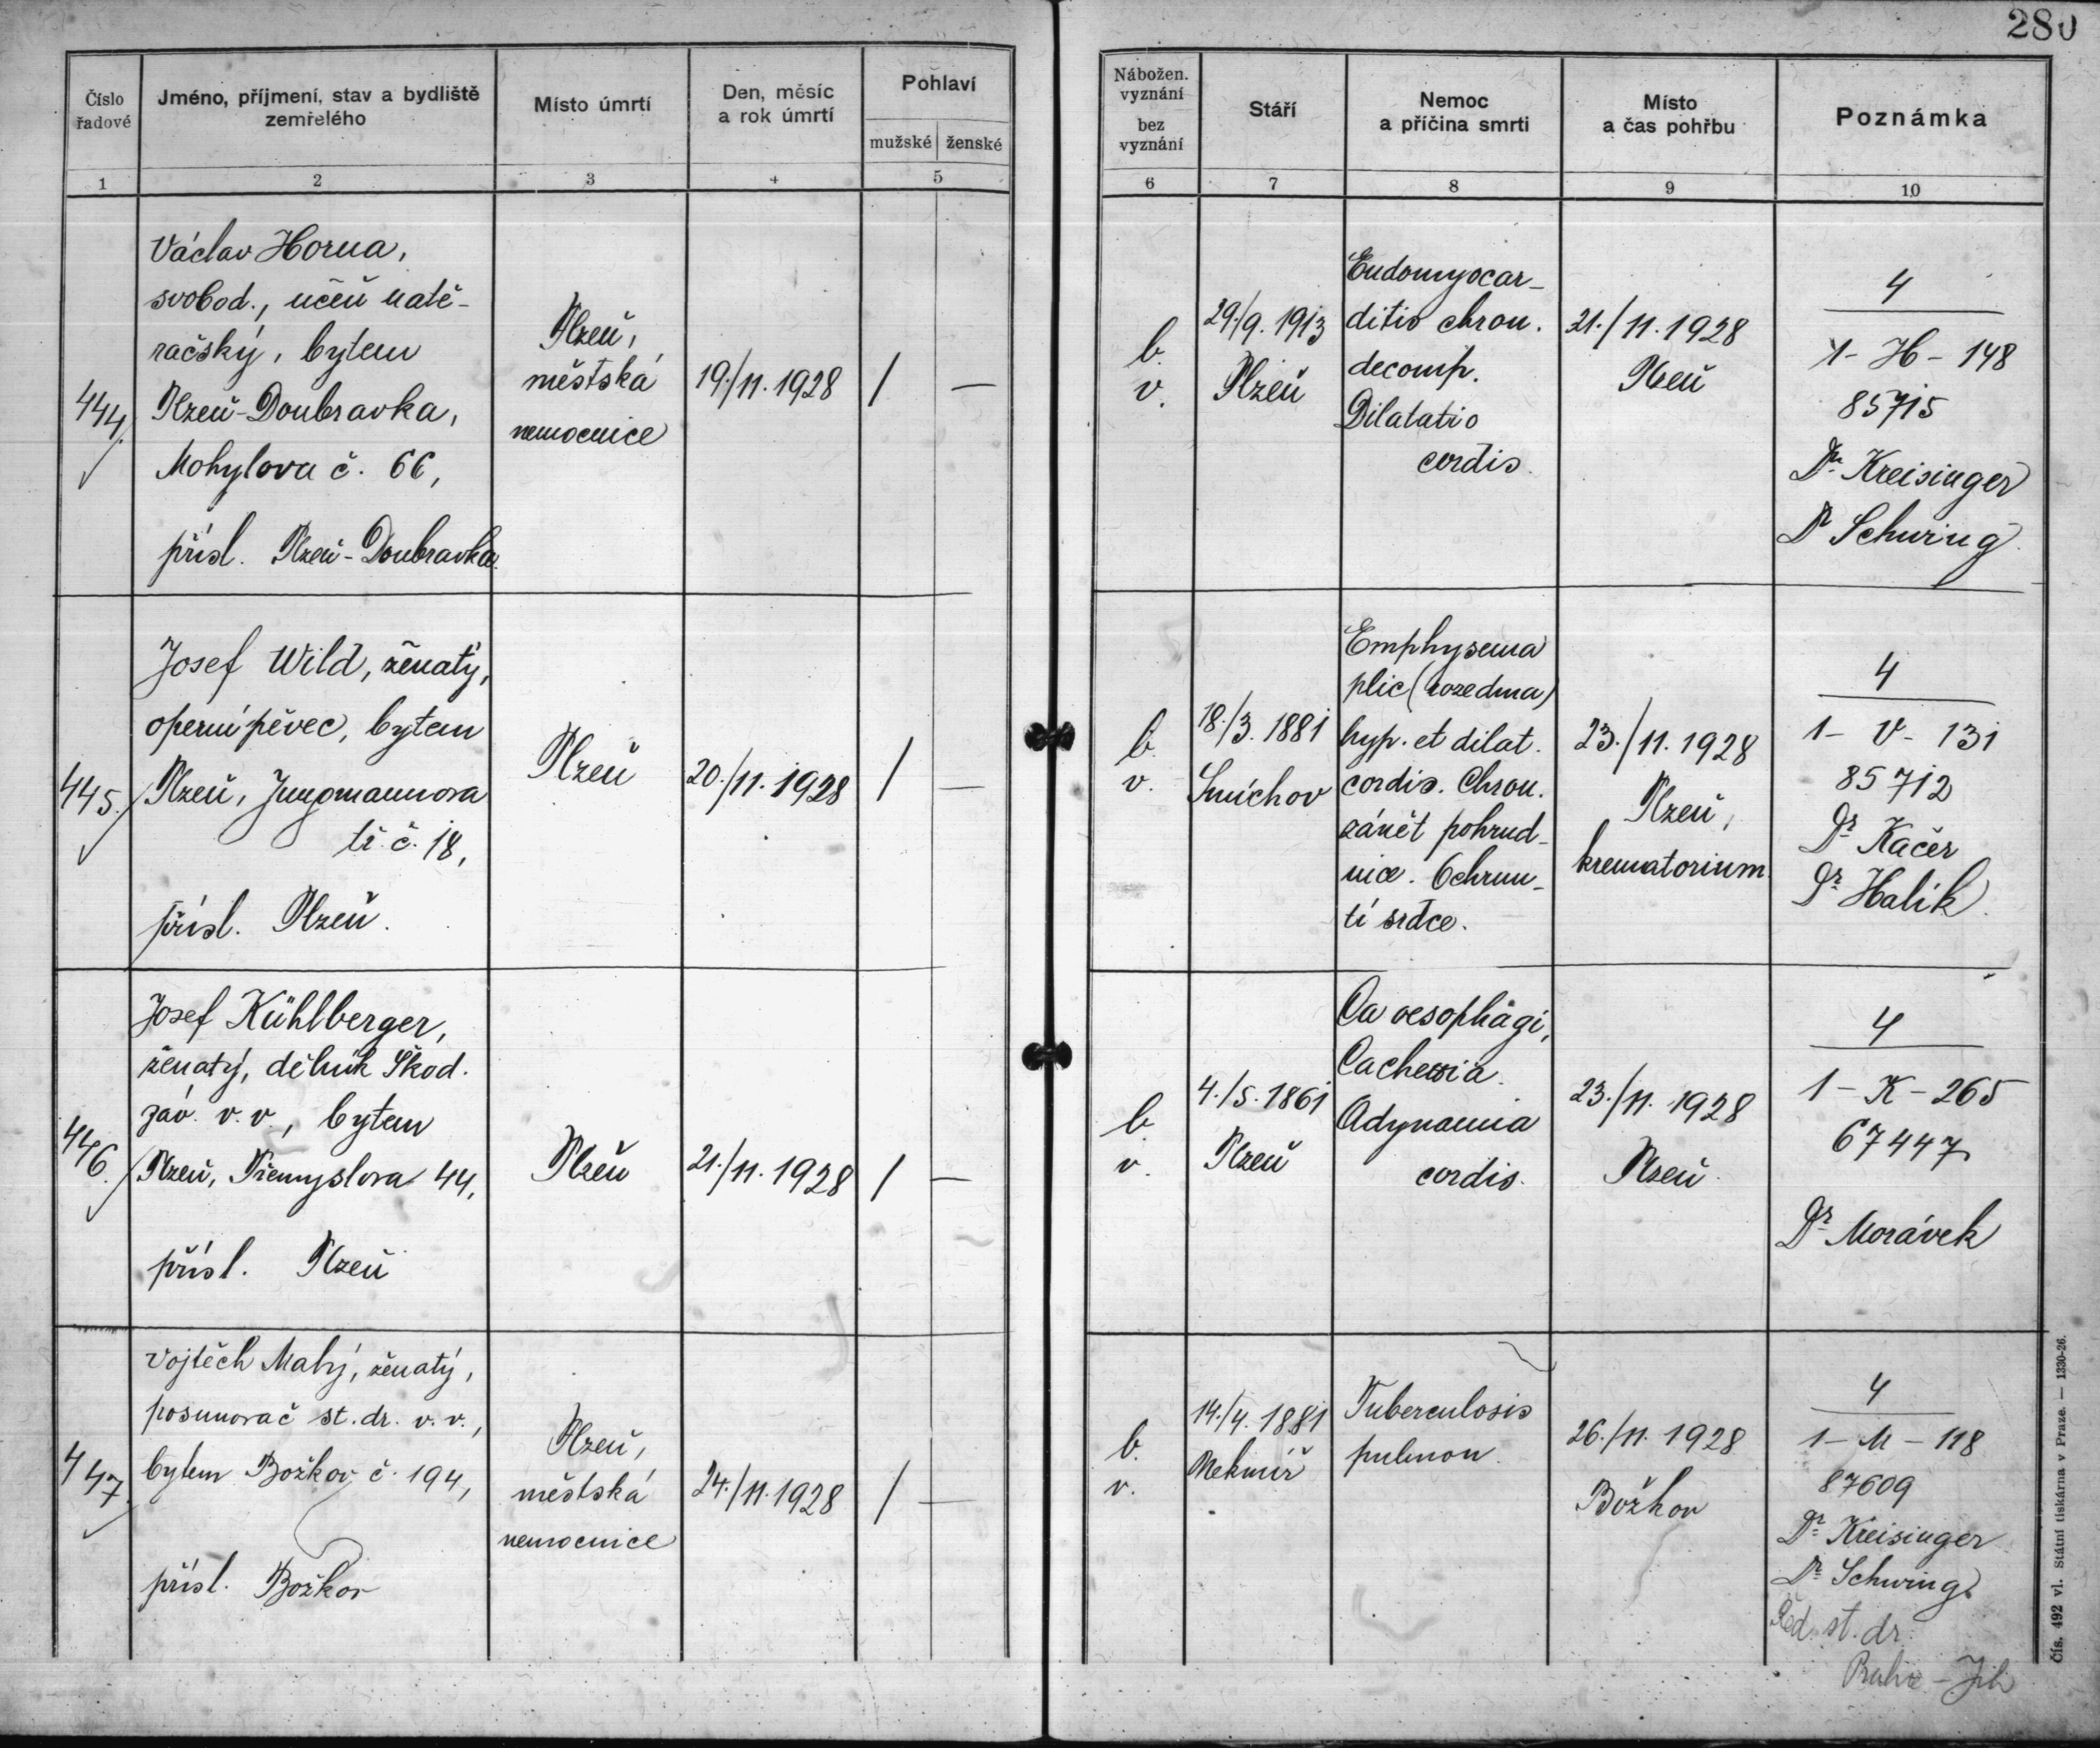 280
Číslo
řadové
Jméno, příjmení, stav a bydliště
zemřelého
Místo úmrtí
Den, měsíc
a rok úmrtí
Pohlaví
mužské
ženské
1
2
3
4
5
Nábožen.
vyznání
bez
vyznání
Stáří
Nemoc
a příčina smrti
Místo
a čas pohřbu
Poznámka
6
7
8
9
10
444.
Václav Horna,
svobod., učeň natě-
račský, bytem
Plzeň-Doubravka,
Mohylova č. 66,
přísl. Plzeň-Doubravka.
Plzeň,
městská
nemocnice
19./11. 1928
/
—
b.
v.
29./9. 1913
Plzeň
Endomyocar-
ditis chron.
decomp.
Dilatatio
cordis.
21./11. 1928
Plzeň
4
1- H - 148
85715
Dr Kreisinger
Dr Schwing.
445.
Josef Wild, ženatý,
operní pěvec, bytem
Plzeň, Jungmannova
tř. č. 18,
přísl. Plzeň.
Plzeň
20./11. 1928
/
—
b.
v.
18./3. 1881
Smíchov
Emphysema
plic (rozedma)
hyp. et dilat.
cordis. Chron.
zánět pohrud-
nice. Ochrnu-
tí srdce.
23./11. 1928
Plzeň,
krematorium.
4
1- V - 131
85712
Dr Kačer
Dr Halík.
446.
Josef Kühlberger,
ženatý, dělník Škod.
záv. v. v., bytem
Plzeň, Přemyslova 44,
přísl. Plzeň
Plzeň
21./11. 1928
/
—
b.
v.
4./5. 1861
Plzeň
Ca oesophagi,
Cachexia.
Adynamia
cordis.
23./11. 1928
Plzeň.
4
1 - K - 265
67447
Dr Morávek
447.
Vojtěch Malý, ženatý,
posunovač st. dr. v. v.,
bytem Božkov č. 194,
přísl. Božkov
Plzeň,
městská
nemocnice
24./11. 1928
/
—
b.
v.
14./4. 1881
Nekmíř
Tuberculosis
pulmon.
26./11. 1928
Božkov
4
1- M - 118
87609
Dr Kreisinger
Dr Schwing.
Řed. st. dr.
Praha - Jih
Čís. 492 vl. Státní tiskárna v Praze. — 1330-26.